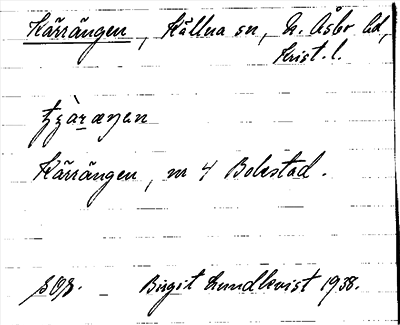 Kärrängen, Källna sn, N. Åsbo hd,
Krist. l.
Kärrängen, m 4 Bolestad.
Birgit Lundkvist 1938.